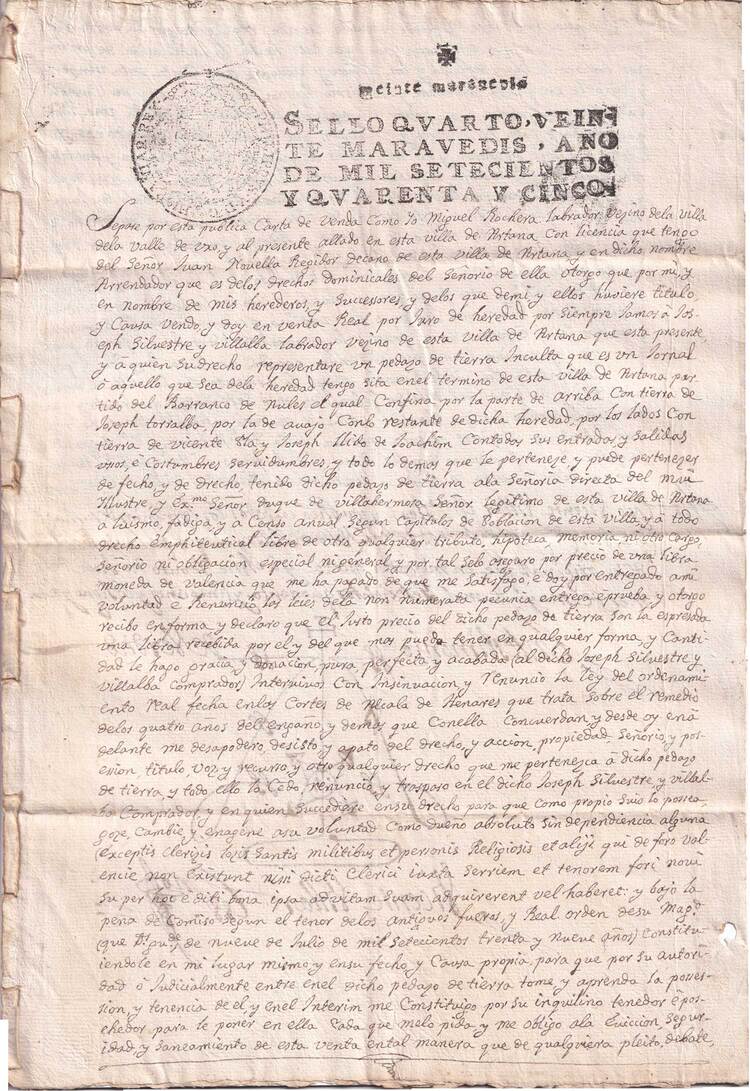 veinte maravedis
SELLO QVARTO, VEIN-
TE MARAVEDIS, AÑO
DE MIL SETECIENTOS
Y QVARENTA Y CINCO.
Sepase por esta publica Carta de Venda Como Yo Miguel Rochera labrador Vezino dela villa
dela Valle de Uxo, y al presente allado en esta villa de Artana Con licencia que tengo
del Señor Juan Novella Regidor decano de esta villa de Artana, y en dicho nombre
Arrendador que es delos drechos dominicales del Señorio de ella otorgo que por mi, y
en nombre de mis herederos, y Successores, y delos que demi, y ellos huviere titulo,
y Causa Vendo, y doy en venta Real por Juro de heredad por Siempre Jamas a Jo-
seph Silvestre y Villalba labrador Vezino de esta villa de Artana que esta presente,
y a quien Su drecho representare un pedazo de tierra Inculta que es un Jornal
ò aquello que sea dela heredad tengo sita enel termino de esta villa de Artana par-
tido del Barranco de Nules el qual Confina por la parte de arriba Con tierra de
Joseph torralba, por la de avajo Conlo restante de dicha heredad, por los lados Con
tierra de vicente Pla y Joseph Llido de Joachim Contodas sus entradas, y Salidas
usos, è Costumbres Servidumbres, y todo lo demas que le perteneze, y puede pertenezer
de fecho, y de drecho, tenido dicho pedazo de tierra ala Señoria directa del mui
Illustre, y Exmo Señor duque de villahermosa Señor legitimo de esta villa de Artana
à luismo, fadiga, y a Censo anual Segun Capitulos de Poblacion de esta villa, y à todo
drecho emphiteutical libre de otro qualquier tributo, hipoteca memoria ni otro cargo,
Señorio ni obligacion especial ni general y por tal selo aseguro por precio de una libra
moneda de Valencia que me ha pagado de que me Satisfago, è doy por entregado a mi
voluntad è Renuncio las leies dela non numerata pecunia entrega, e prueba y otorgo
recibo en forma y declaro que el Justo precio del dicho pedazo de tierra son la espresada
una libra recebida por el y del que mas pueda tener en qualquier forma, y Canti-
dad le hago gracia y donacion, pura perfecta y acabada (al dicho Joseph Silvestre y
Villalba Comprador) Intervivos Con Insinuacion, y renuncio la Ley del ordenami-
ento real fecha enlas Cortes de Alcala de Henares que trata Sobre el remedio
delos quatro años del engaño, y demas que Conella Concuerdan, y desde oy en a
delante me desapodero, desisto, y aparto del drecho, y accion, propiedad, Señorio, y pos-
session, titulo, voz, y recurso, y otro qualquier drecho que me pertenezca à dicho pedazo
de tierra, y todo ello lo Cedo, renuncio, y traspaso en el dicho Joseph Silvestre, y villal-
ba Comprador, y en quien Succediere en su drecho para que como propio Suio lo possea,
goze, Cambie, y enagene asu voluntad Como dueño absoluto Sin dependiencia alguna
(exceptis clericis locis Santis militibus et personis Religiosis et alÿs qui de foro Val-
encie non existunt nisi dicti Clerici iuxta Serriem et tenorem fori novi
Super hoc editi bona ipsa advitam Suam adquirerent vel haberet: y bajo la
pena de Comiso Segun el tenor delos antiguos fueros, y Real orden desu Magd.
(que Ds. gue.) de nueve de Julio de mil Setecientos trenta y nueve años) Constitu-
iendole en mi lugar mismo y ensu fecho, y Causa propia, para que por su autori-
dad ò Judicialmente entre enel dicho pedazo de tierra tome, y aprenda la posses-
sion, y tenencia de el, y enel Interim me Constituigo por Su inquilino tenedor è pos-
ehedor para le poner en ella Cada que melo pida, y me obligo ala Eviccion, Segur-
idad, y Saneamiento de esta venta ental manera que de qualquiera pleito, debate,